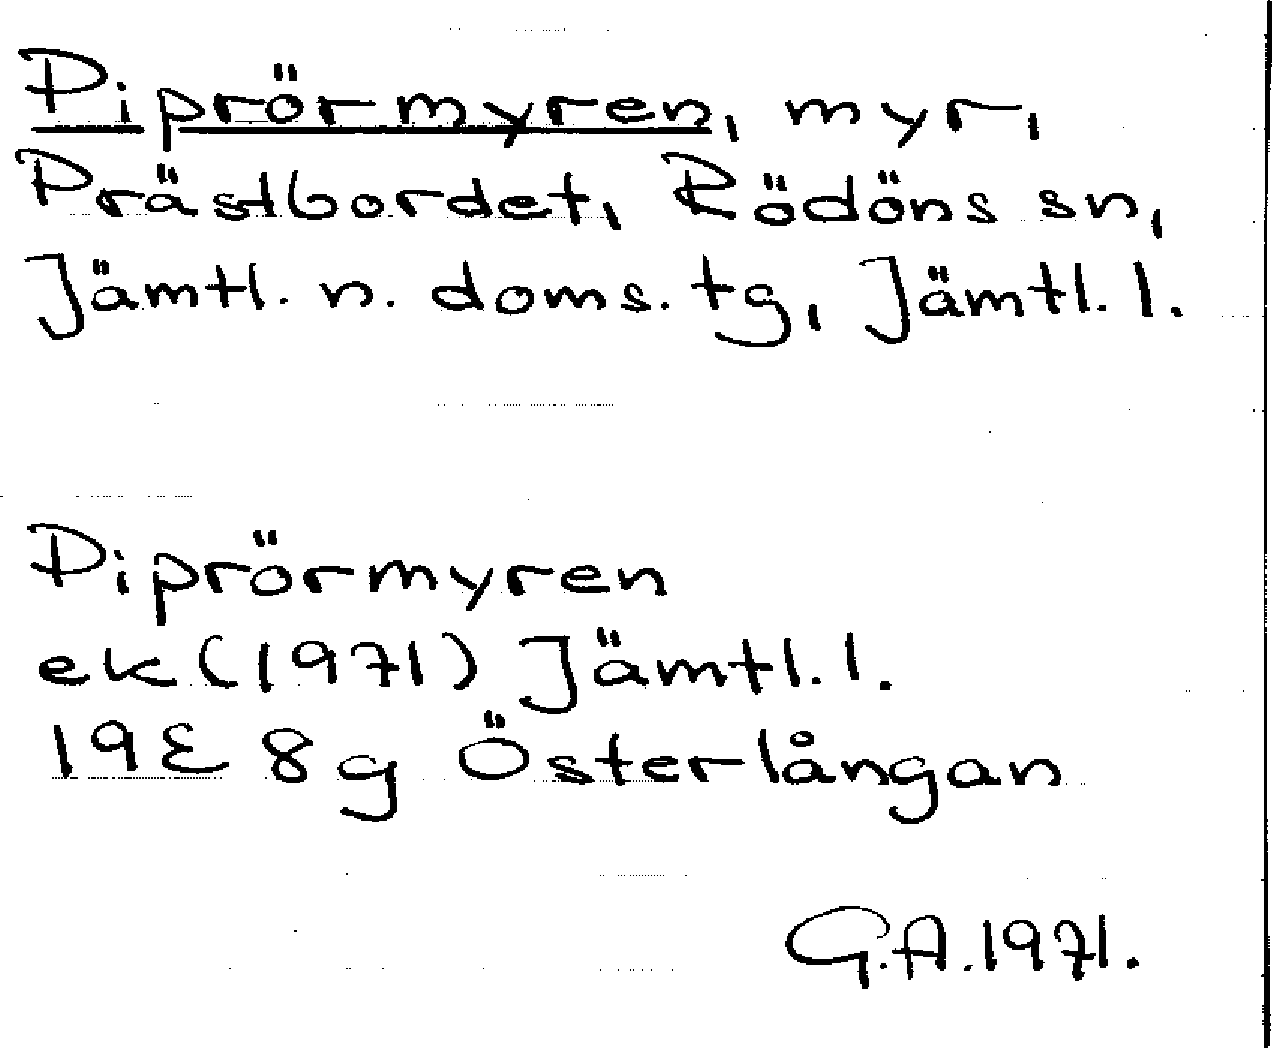 Piprörmyren, myr,
Prästbordet, Rödöns sn,
Jämtl. n. doms. tg, Jämtl. l.
Piprörmyren
ek (1971) Jämtl. l.
19E 8g Österlångan
G.A. 1971.